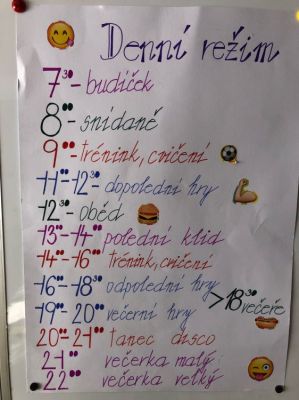 Denní režim
7³⁰- budíček
8⁰⁰- snídaně
9⁰⁰- trénink, cvičení
11⁰⁰-12³⁰- dopolední hry
12³⁰- oběd
13⁰⁰-14⁰⁰ polední klid
14⁰⁰-16⁰⁰ trénink, cvičení
16⁰⁰-18³⁰ odpolední hry
>18³⁰ večeře
19⁰⁰-20⁰⁰ večerní hry
20⁰⁰-21⁰⁰ tanec disco
21⁰⁰ večerka malý
22⁰⁰ večerka velký